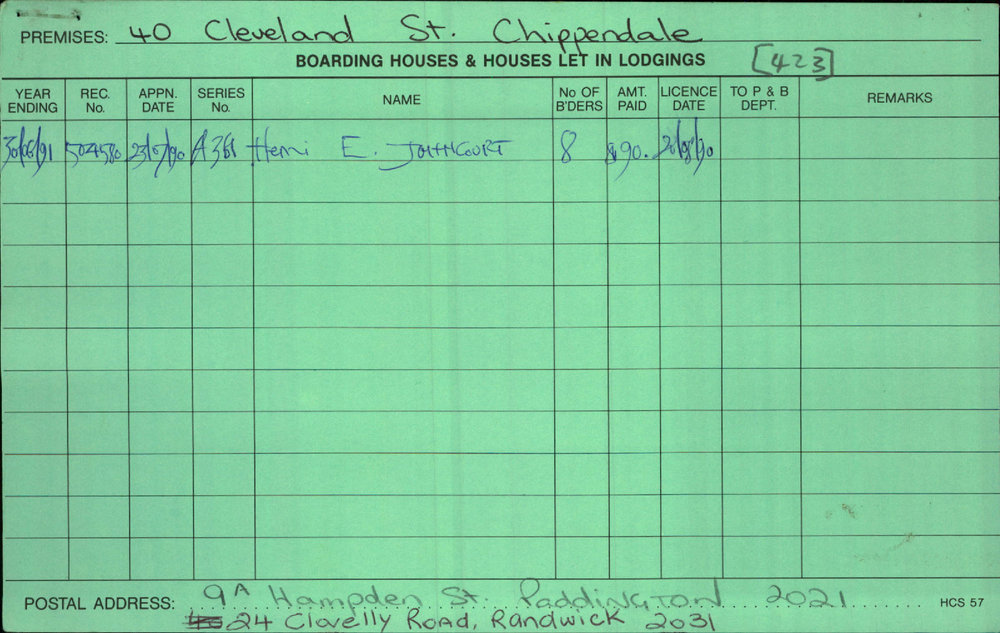 PREMISES: 40 Cleveland St. Chippendale
BOARDING HOUSES & HOUSES LET IN LODGINGS [423]
YEAR ENDING REC. No. APPN. DATE SERIES No. NAME No OF B'DERS AMT. PAID LICENCE DATE TO P & B DEPT. REMARKS
30/06/91 504580 23/07/90 A361 Henri E. JOHNCOURT 8 $90. 20/8/90
POSTAL ADDRESS: 9A Hampden St. PADDINGTON 2021 HCS 57
24 Clovelly Road, Randwick 2031